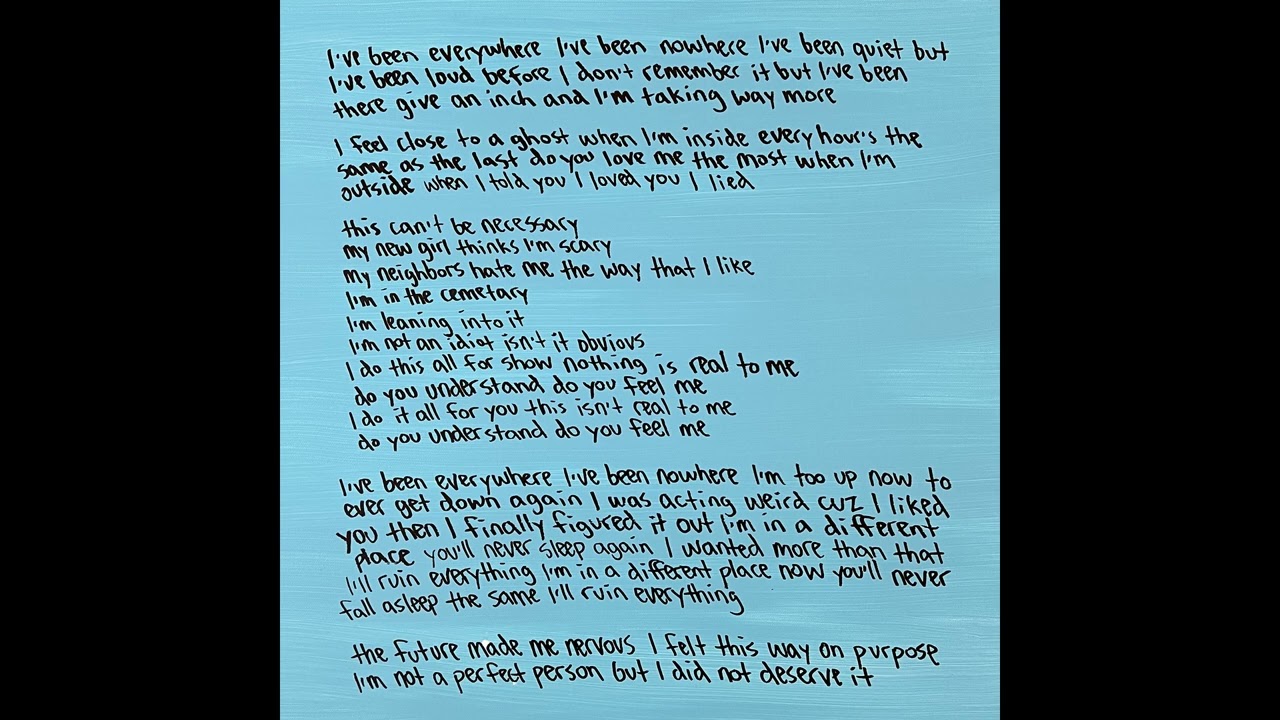 I've been everywhere I've been nowhere I've been quiet but
I've been loud before I don't remember it but I've been
there give an inch and I'm taking way more
I feel close to a ghost when I'm inside every hour's the
same as the last do you love me the most when I'm
outside when I told you I loved you I lied
this can't be necessary
my new girl thinks I'm scary
my neighbors hate me the way that I like
I'm in the cemetary
I'm leaning into it
I'm not an idiot isn't it obvious
I do this all for show nothing is real to me
do you understand do you feel me
I do it all for you this isn't real to me
do you understand do you feel me
I've been everywhere I've been nowhere I'm too up now to
ever get down again I was acting weird cuz I liked
you then I finally figured it out I'm in a different
place you'll never sleep again I wanted more than that
I'll ruin everything I'm in a different place now you'll never
fall asleep the same I'll ruin everything
the future made me nervous I felt this way on purpose
I'm not a perfect person but I did not deserve it